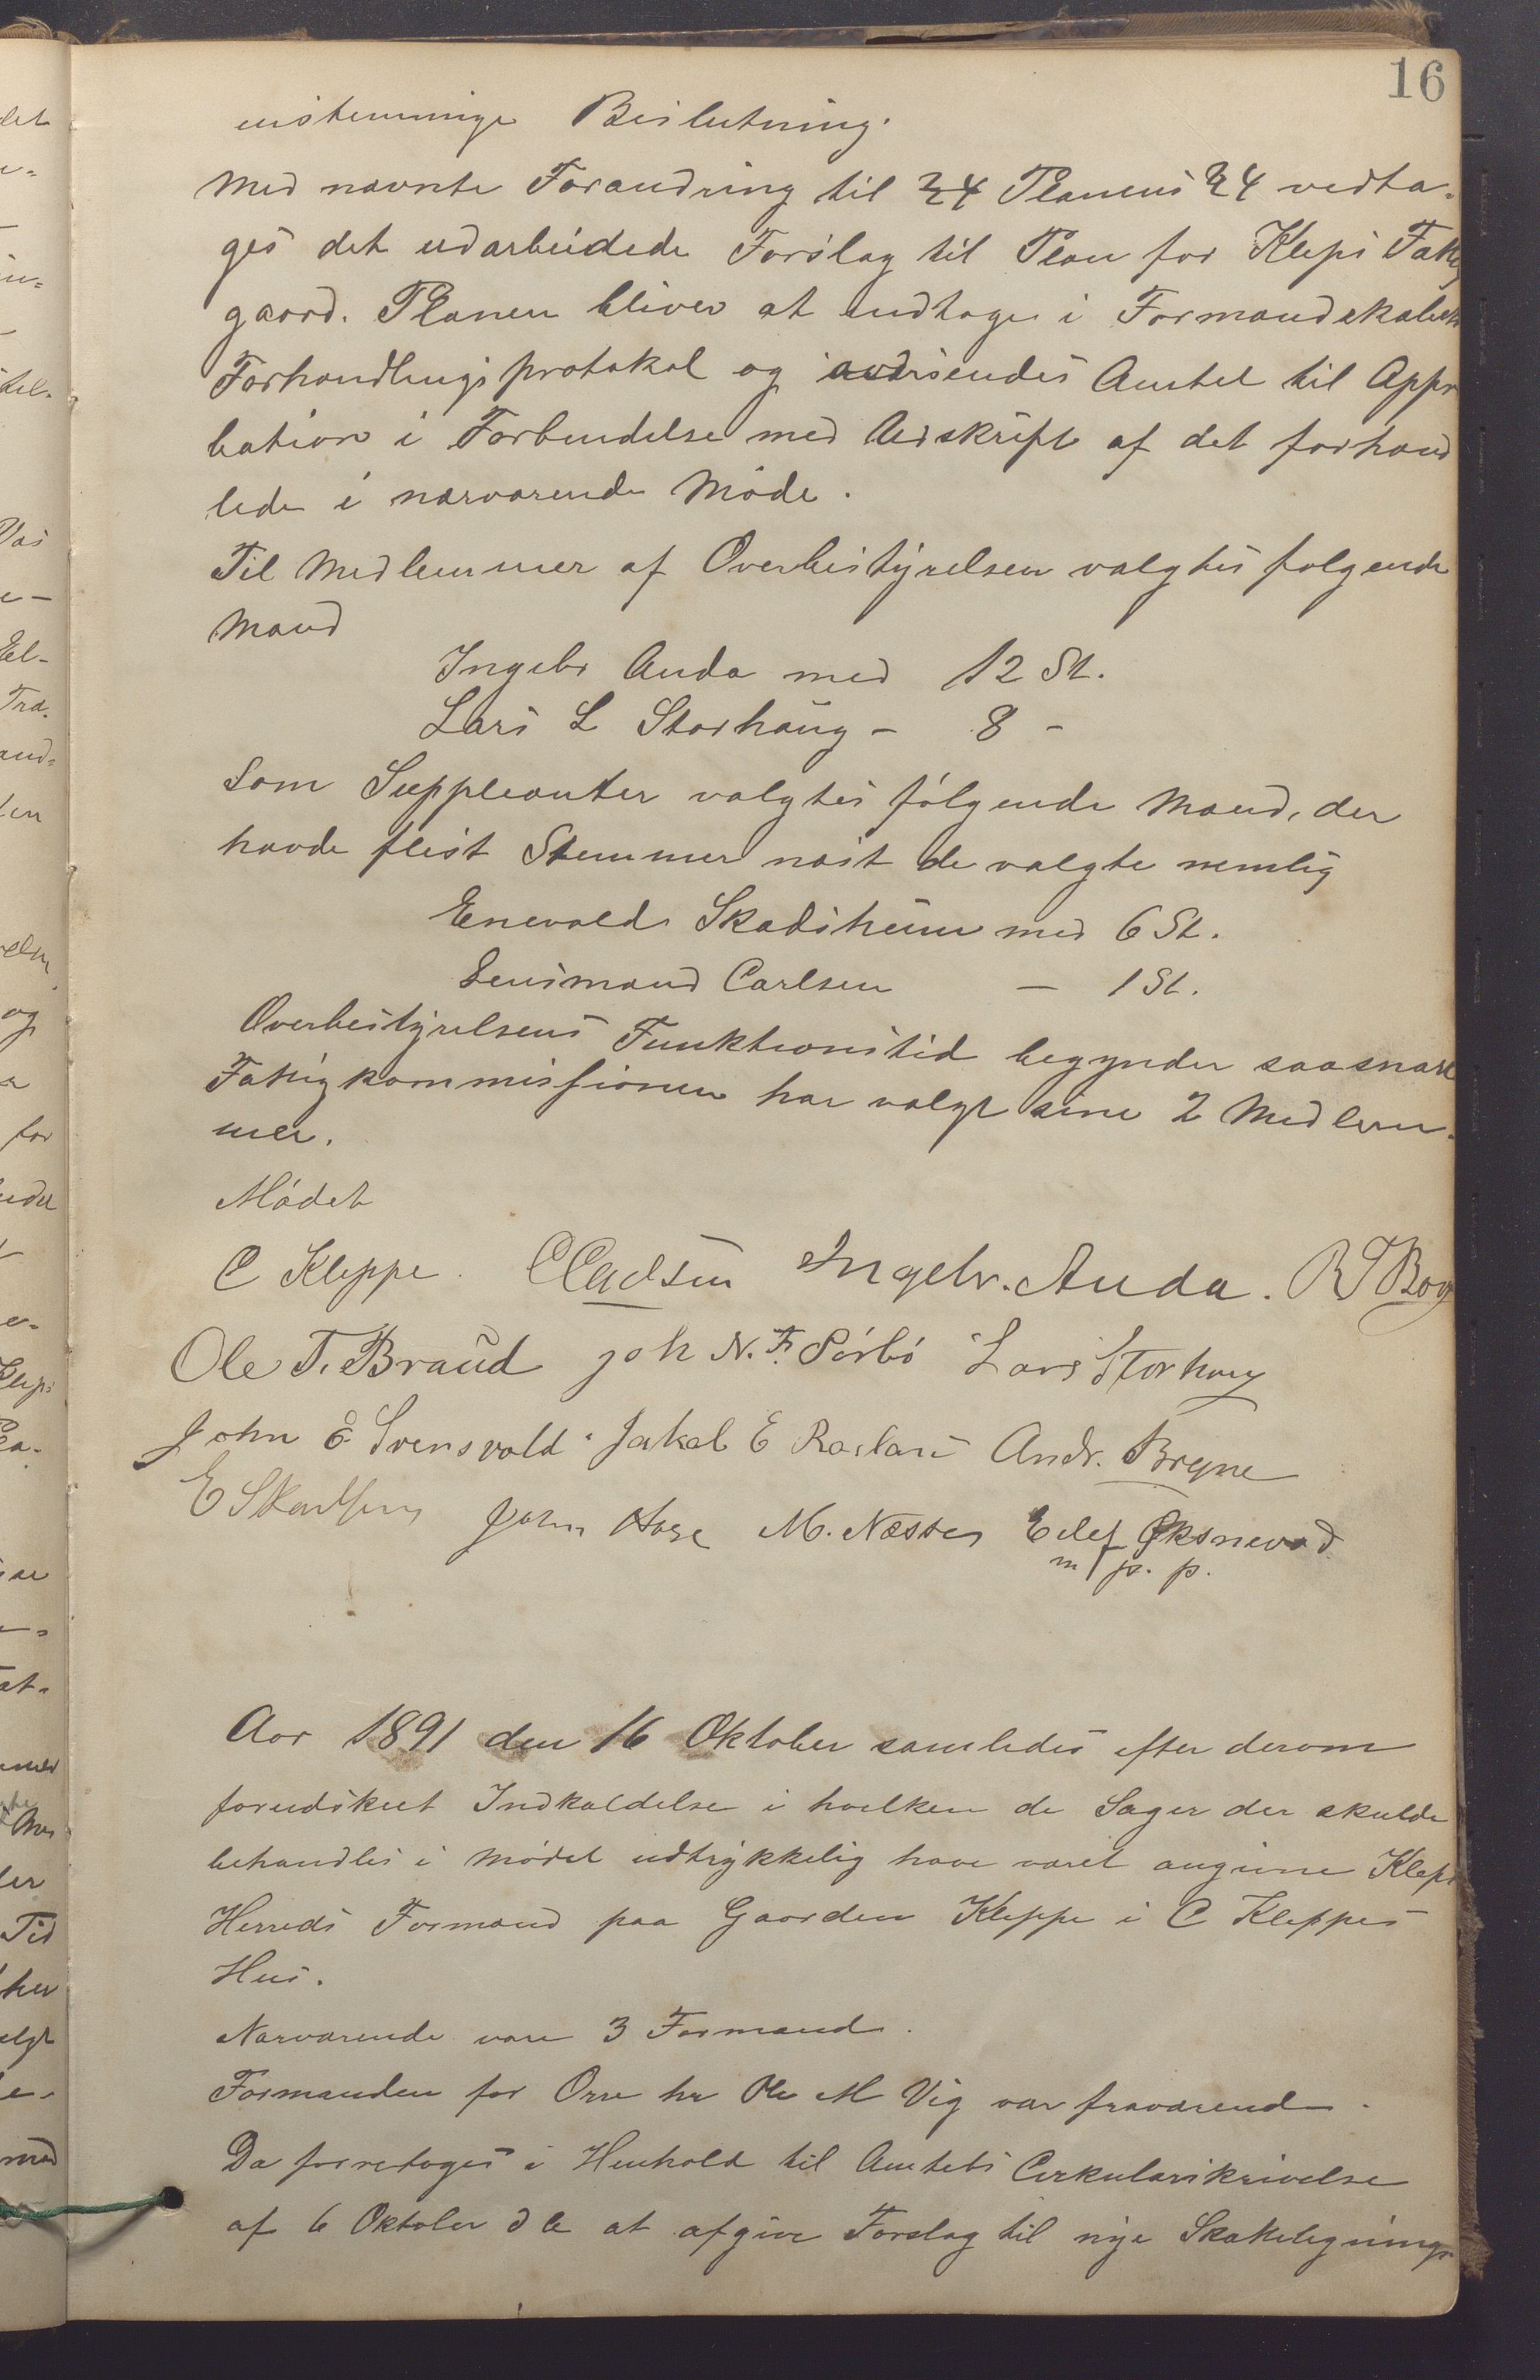 16
enstemmige Beslutning.
Med nævnte Forandring til § 4 Planens § 4 vedta-
ges det udarbeidede Forslag til Plan for Kleps Fattig
gaard. Planen bliver at indtage i Formandskabets
Forhandlingsprotokol og indsendes Amtet til Appro
bation i Forbindelse med Udskrift af det forhand
lede i nærværende Møde.
Til Medlemmer af Overbestyrelsen valgtes følgende
Mænd
Ingebr Anda med 12 St.
Lars L Storhaug - 8 -
Som Suppleanter valgtes følgende Mænd, der
havde flest Stemmer næst de valgte nemlig
Enevald Skadsheim med 6 St.
Lensmand Carlsen - 1 St.
Overbestyrelsens Funktionstid begynder saasnart
Fattigkommissionen har valgt sine 2 Medlem-
mer.
Mødet
C Kleppe. C Carlsen Ingebr. Anda. R T Bore
Ole T. Braud Joh N. F. Sørbø Lars Storhaug
John E Svensvold Jakob E Roslan Andr. Bryne
E Skadsem John Hase M. Næsse Eilef Øksnevad
m/ p. p.
Aar 1891 den 16 Oktober samledes efter derom
forudskeet Indkaldelse i hvilken de Sager der skulde
behandles i Mødet udtrykkelig have været angivne Kleps
Herreds Formænd paa Gaarden Kleppe i C Kleppes
Hus.
Nærværende vare 3 Formænd.
Formanden for Orre hr Ole M Vig var fraværende.
Da foretoges i Henhold til Amtets Cirkulærskrivelse
af 6 Oktober d A at afgive Forslag til nye Skattelignings